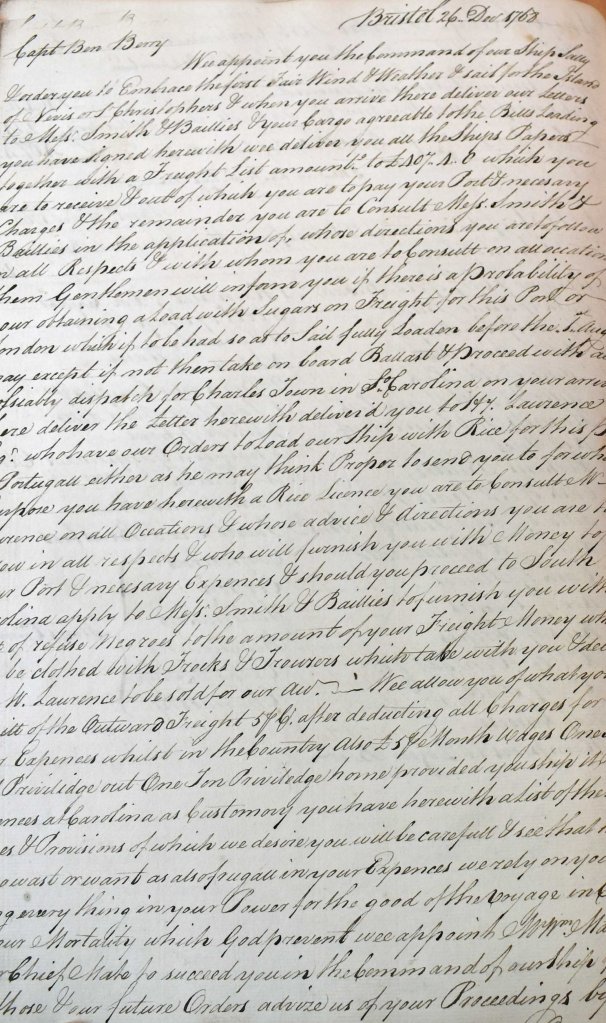 Bristol 26 Decr 1768
Capt Ben Berry
Wee appoint you the Command of our Ship Sally
& order you to Embrace the first Fair Wind & Weather & sail for the Island
of Nevis or St Christophers & when you arrive there deliver our Letters
to Messrs Smith & Baillies & your Cargo agreable to the Bills Loading
you have signed herewith wee deliver you all the Ships Papers
together with a Freight List amountg to £407.4.6 which you
are to receive & out of which you are to pay your Port & necesary
Charges & the remainder you are to Consult Messrs Smith &
Baillies in the application of, whose directions you are to follow
in all Respects & with whom you are to Consult on all occations
them Gentlemen will inform you if there is a Probability of
our obtaining a Load with Sugars on Freight for this Port or
London which if to be had so as to Sail fully Loaden before the
may except if not then take on board Ballast & Proceed with
dispatch for Charles Town in So Carolina on your
deliver the Letter herewith deliverd you to Laurence
who have our Orders to Load our Ship with Rice for this
Portugall either as he may think Proper to send you to for
you have herewith a Rice Licence you are to Consult
on all Occations & whose advice & directions you are
in all respects & who will furnish you with Money to
Port & necesary Expences & should you proceed to South
apply to Messrs Smith & Baillies to furnish you with
of refuse Negroes to the amount of your Freight Money
be clothed with Frocks & Trowsers which take with you &
Lawrence to be sold for our Acct. Wee allow you of what you
of the Outward Freight 5 ⅌ Ct. after deducting all Charges for
Expences whilst in the Country Also £5 ⅌ Month Wages One
Privilidge out One Ton Priviledge home provided you ship it
at Carolina as Customory you have herewith a List of the
& Provisions of which we desire you will be carefull & see that
wast or want as also frugall in your Expences we rely on you
every thing in your Power for the good of the Voyage in
our Mortality which God prevent wee appoint Mr Wm
Chief Mate to succeed you in the Command of our Ship
those & our future Orders advize us of your Proceedings by